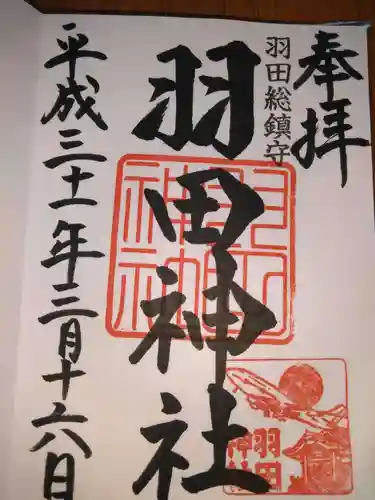 奉拝
羽田総鎮守
羽田神社
平成三十一年三月十六日
羽田神社
羽田
神社